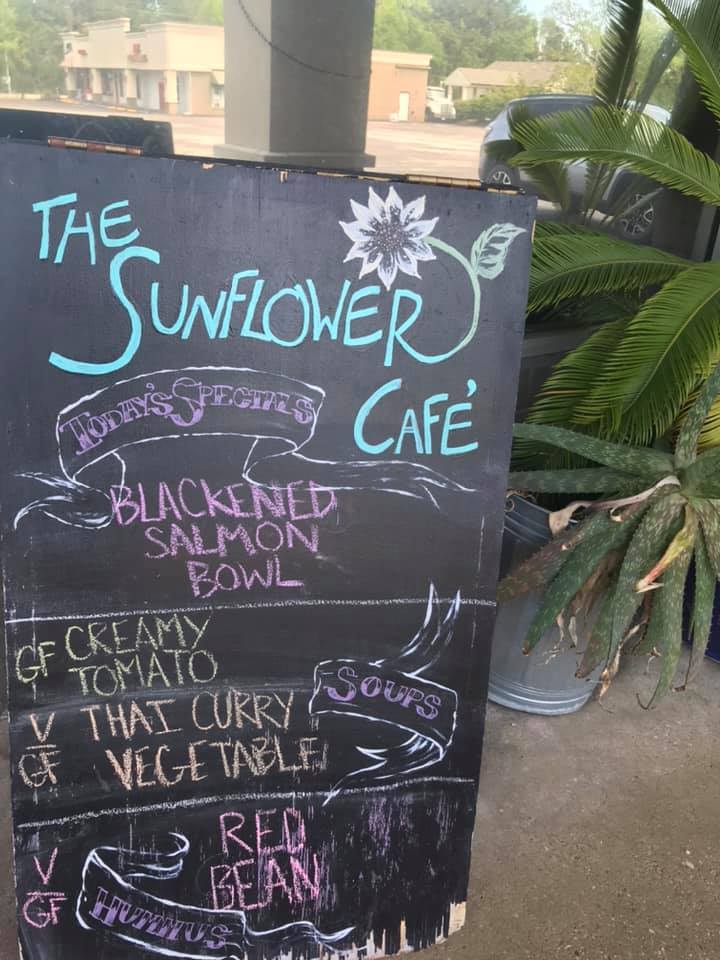 THE
SUNFLOWER
CAFÉ
TODAY'S SPECIALS
BLACKENED
SALMON
BOWL
GF CREAMY
TOMATO
SOUPS
V THAI CURRY
GF VEGETABLE
RED
BEAN
V
GF
HUMMUS